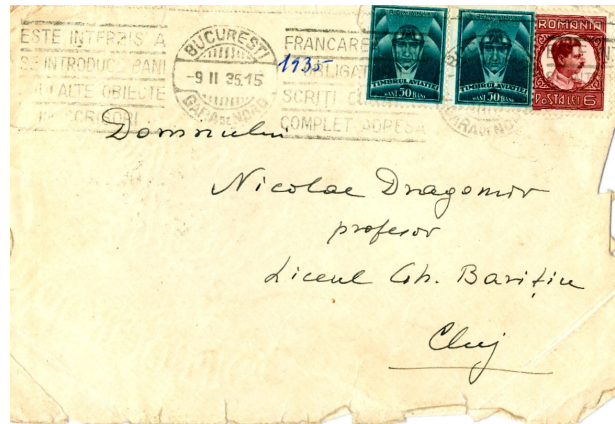 ESTE INTERZIS A
SE INTRODUCE BANI
ALTE OBIECTE
SCRISORI
BUCUREȘTI
-9 II 35.15
GARA DE NORD
1935
FRANCARE
OBLIGAT
SCRIȚI
COMPLET ADRESA
TIMBRUL AVIAȚIEI
BANI 50 BANI
TIMBRUL AVIAȚIEI
BANI 50 BANI
ROMANIA
POSTA LEI 6
GARA DE NORD
Domnului
Nicolae Dragomir
profesor
Liceul Gh. Barițiu
Cluj